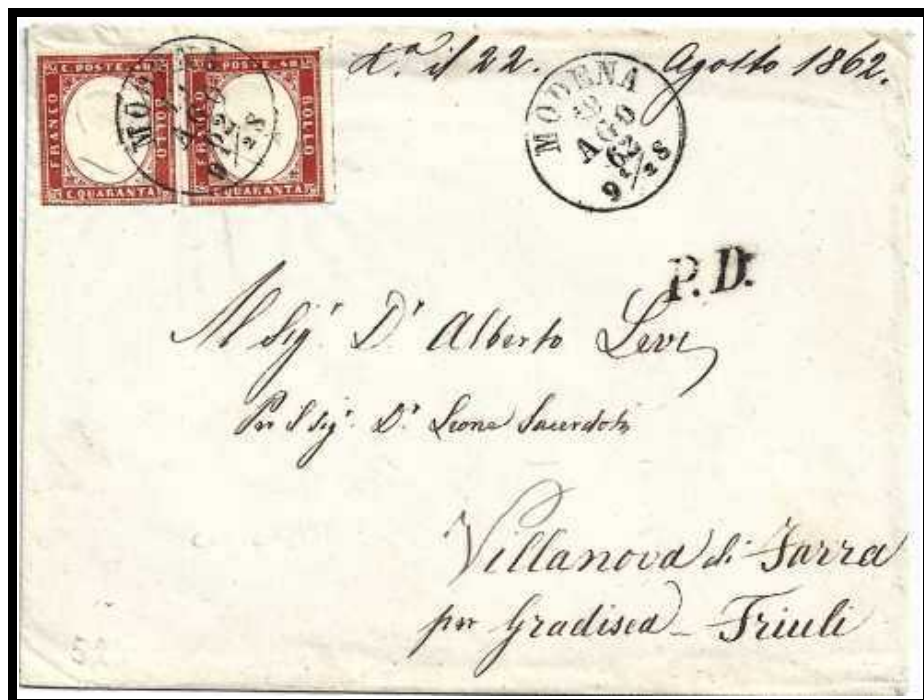 C. POSTE. 40
FRANCO
BOLLO
C. QUARANTA
C. POSTE. 40
FRANCO
BOLLO
C. QUARANTA
MODENA
AGO
62
9 / 2 S
il 22. Agosto 1862.
MODENA
AGO
62
9 / 2 S
P.D.
Al Sig.r D.r Alberto Levi
Per il Sig.r D.r Leone Sacerdoti
Villanova di Farra
per Gradisca - Friuli